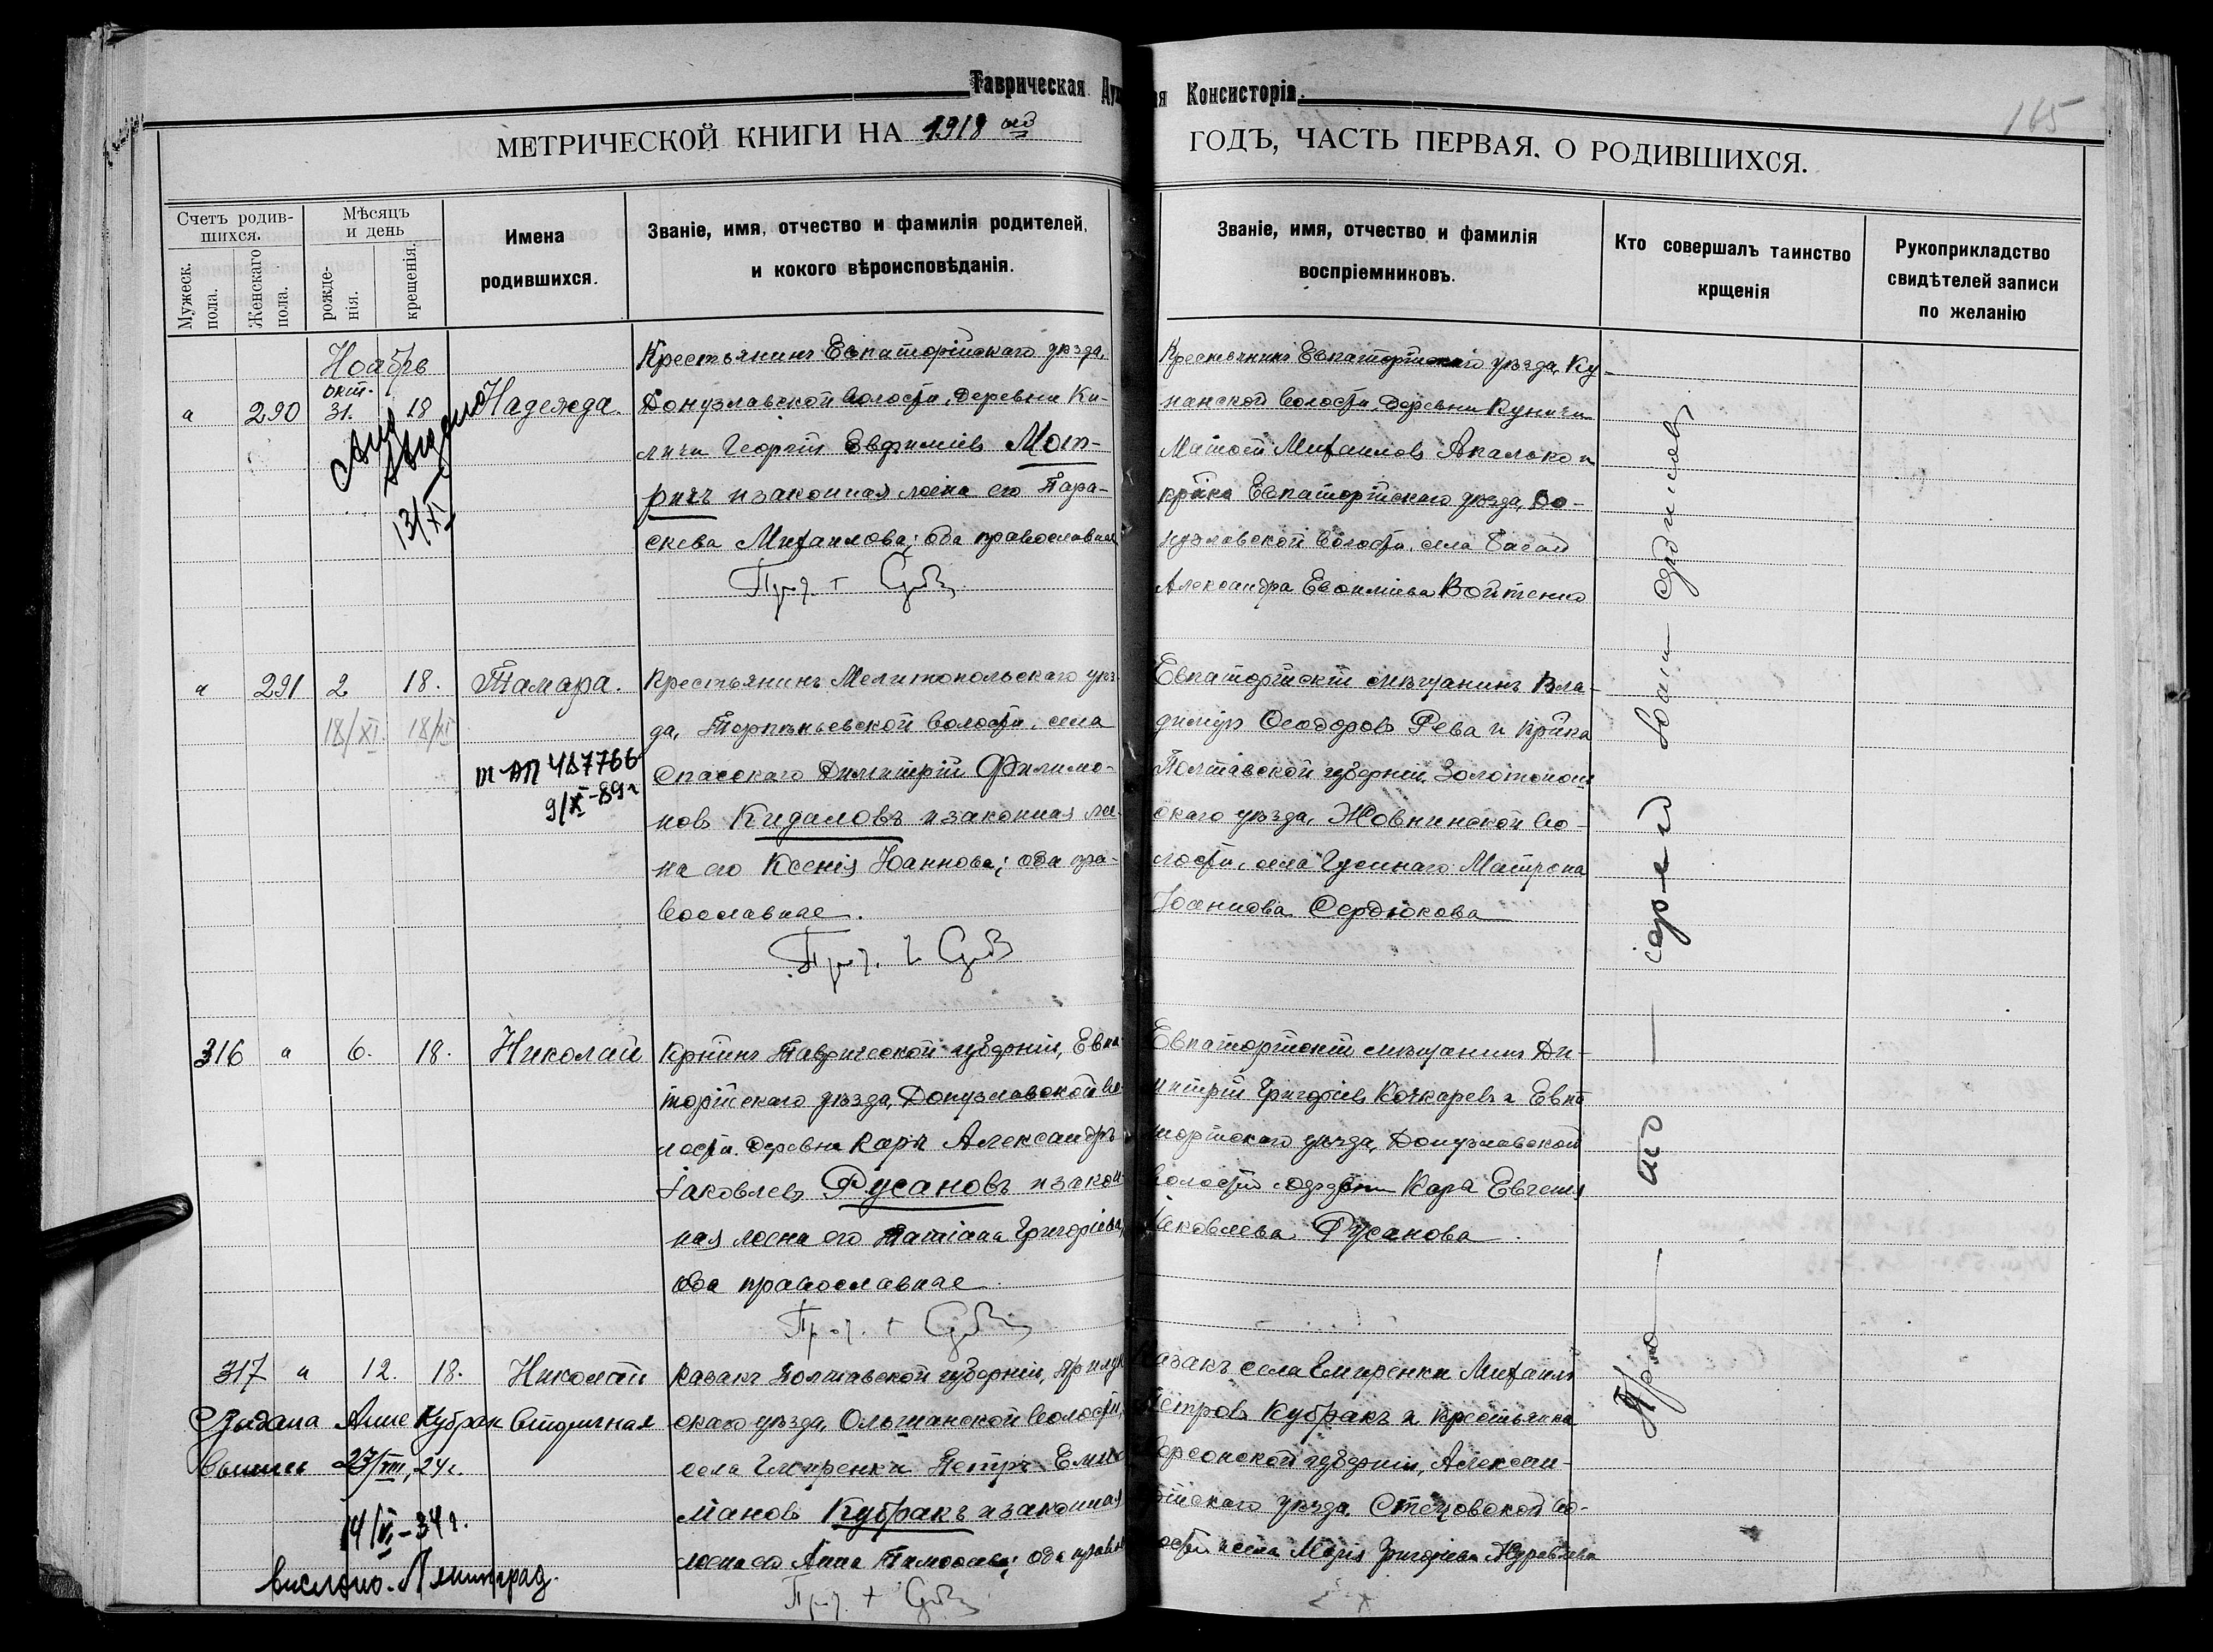 Таврическая Ду
ая Консисторія.
165
МЕТРИЧЕСКОЙ КНИГИ НА 1918 ый
ГОДЪ, ЧАСТЬ ПЕРВАЯ. О РОДИВШИХСЯ.
Счетъ родив-
шихся.
Мужеск.
пола.
Женскаго
пола.
Мѣсяцъ
и день
рожде-
нія.
крещенія.
Имена
родившихся.
Званіе, имя, отчество и фамилія родителей,
и кокого вѣроисповѣданія.
Званіе, имя, отчество и фамилія
воспріемниковъ.
Кто совершалъ таинство
крщенія
Рукоприкладство
свидѣтелей записи
по желанію
Ноябрь
окт.
" 290 31. 18 Надежда.
13/XI
Крестьянинъ Евпаторійскаго уѣзда,
Донузлавской волости, деревни Ки-
Георгій Евфиміевъ Мот-
ричъ и законная жена его Пара-
скева Михаилова; оба православные
Крестьянинъ Евпаторійскаго уѣзда, Ку-
нанской волости, деревни
Михаиловъ и
кр-нка Евпаторійскаго уѣзда, До-
нузлавской волости, села
Александра Евфиміева Войтенко
" 291 2 18. Тамара.
18/XI. 18/XI
III-АП 487766
9/X-89г
Крестьянинъ Мелитопольскаго уѣз-
да, Терпѣньевской волости, села
Спасскаго Димитрій Филимо-
новъ Кидаловъ и законная же-
на его Ксенія Іоаннова; оба пра-
вославные.
Евпаторійскій мѣщанинъ Вла-
димиръ Ѳеодоровъ Рева и кр-нка
Полтавской губерніи, Золотонош
скаго уѣзда, Жовнинской во-
лости, села Гусинаго Матрона
Іоаннова Сердюкова
316 " 6. 18. Николай
Кр-нинъ Таврической губерніи, Евпа-
торійскаго уѣзда, Донузлавской во-
лости, деревни Кара Александръ
Іаковлевъ Русановъ и закон-
ная жена его Татіана Григоріева,
оба православные
Евпаторійскій мѣщанинъ Ди-
митрій Григоріевъ Кочкаревъ и Евпа
торійскаго уѣзда, Донузлавской
волости Кара Евгенія
Іаковлева Русанова
317 " 12. 18. Николай
Выдана Анне Кубрак вторичная
выпись 23/VIII, 24г.
14/VI-34г.
выслано. Ленинград.
Казакъ Полтавской губерніи, Прилук
скаго уѣзда, Ольшанской волости,
села Гмиренки Петръ Еми
ліановъ Кубракъ и законная
жена его Анна Тимоѳеева; оба правосл
Казакъ села Гмиренки Михаилъ
Петровъ Кубракъ и крестьянка
Херсонской губерніи, Алексан-
дрійскаго уѣзда, Стецовской во-
лости и села Марія Григоріева Журавлева